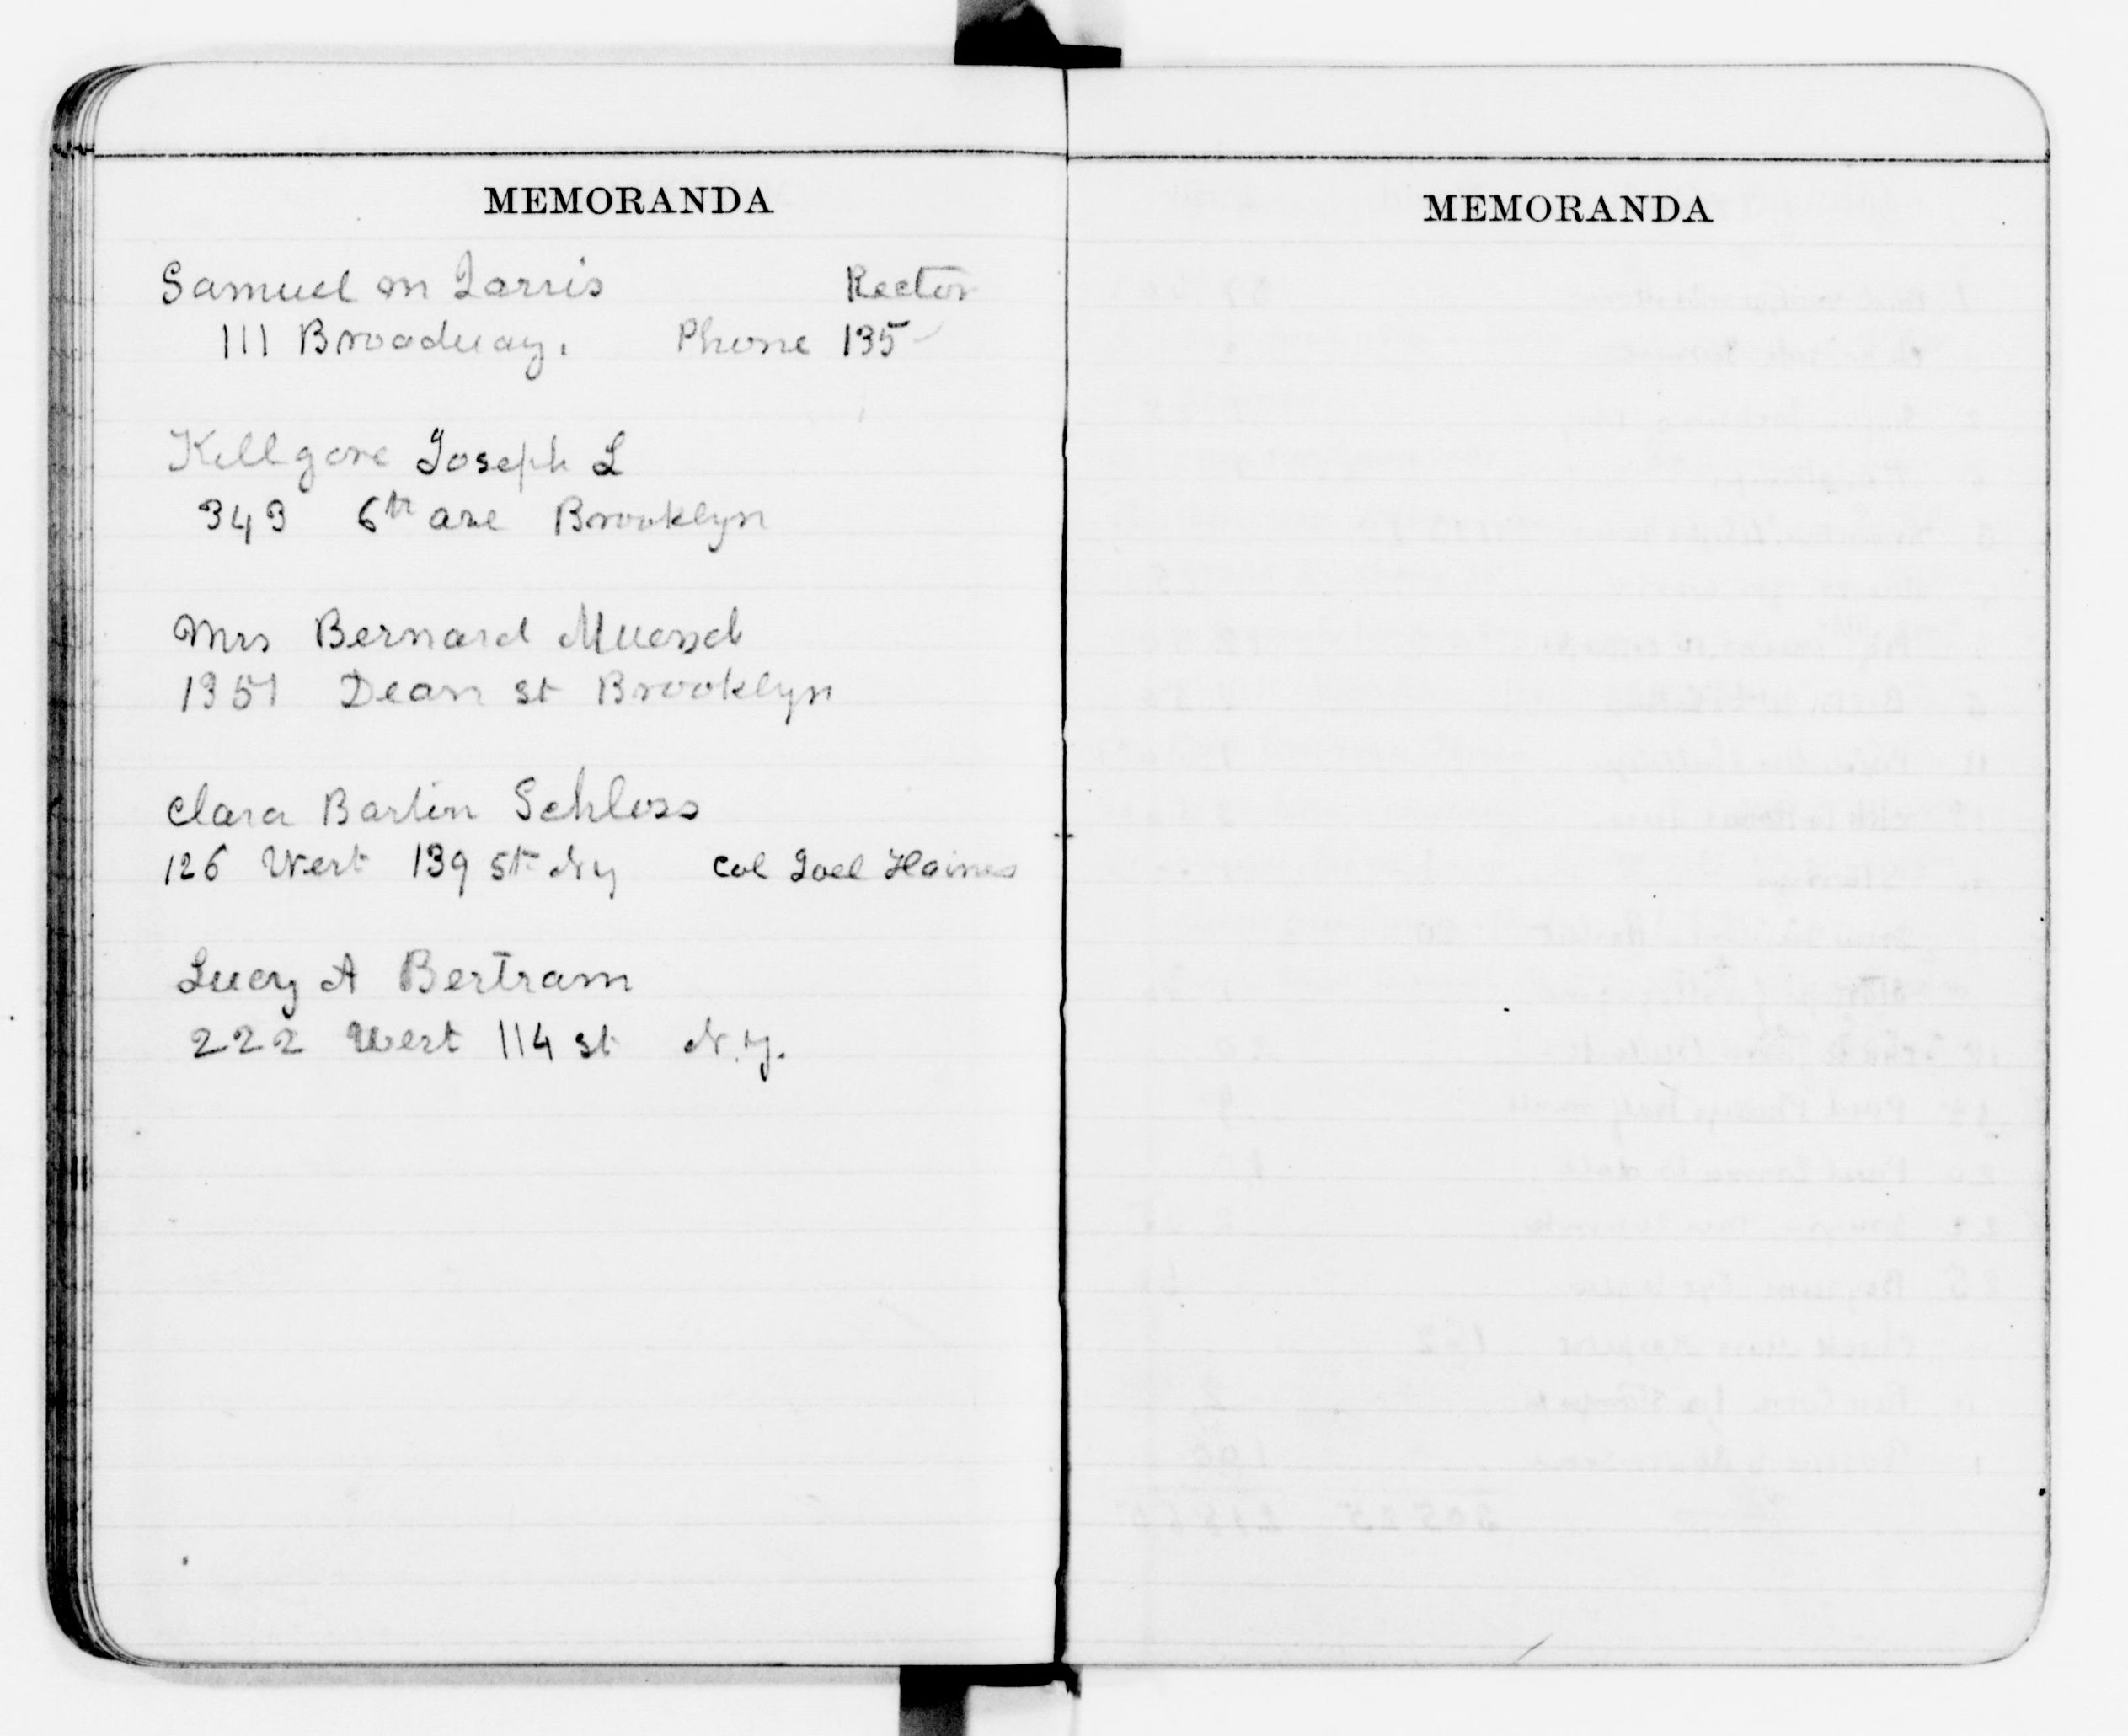 MEMORANDA
Samuel M Jarvis Rector
111 Broadway. Phone 135
Killgore Joseph L
343 6th ave Brooklyn
Mrs Bernard
1351 Dean st Brooklyn
Clara Barton Schloss
126 West 139 St Ny Col Joel Haines
Lucy A Bertram
222 West 114 st N.Y.
MEMORANDA